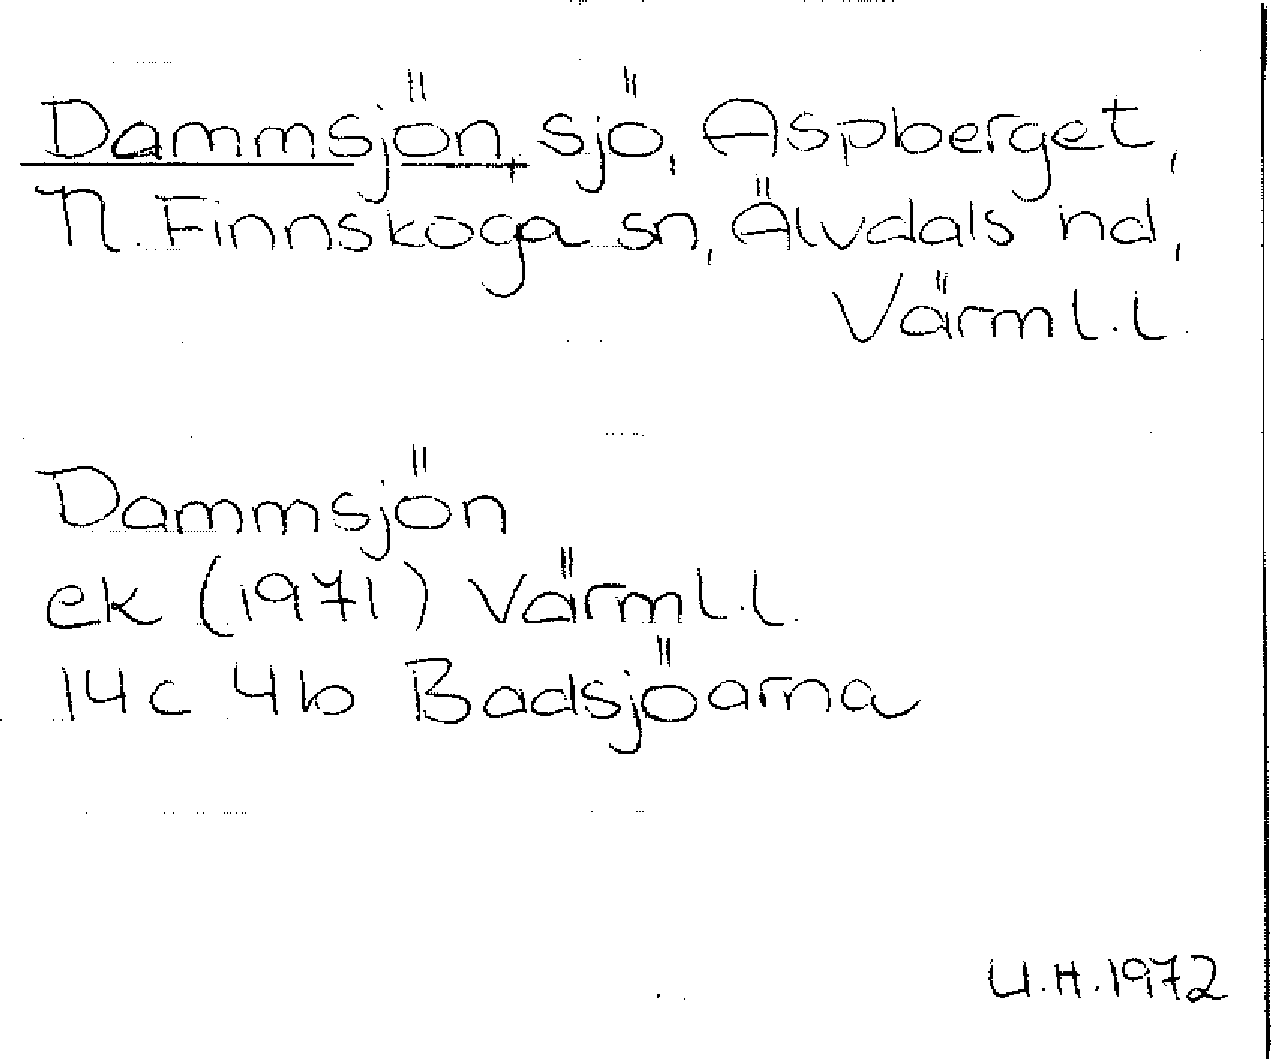 Dammsjön, sjö, Aspberget,
N. Finnskoga sn, Älvdals hd,
Värml. l.
Dammsjön
ek (1971) Värml. l.
14c 4b Badsjöarna
U.H. 1972